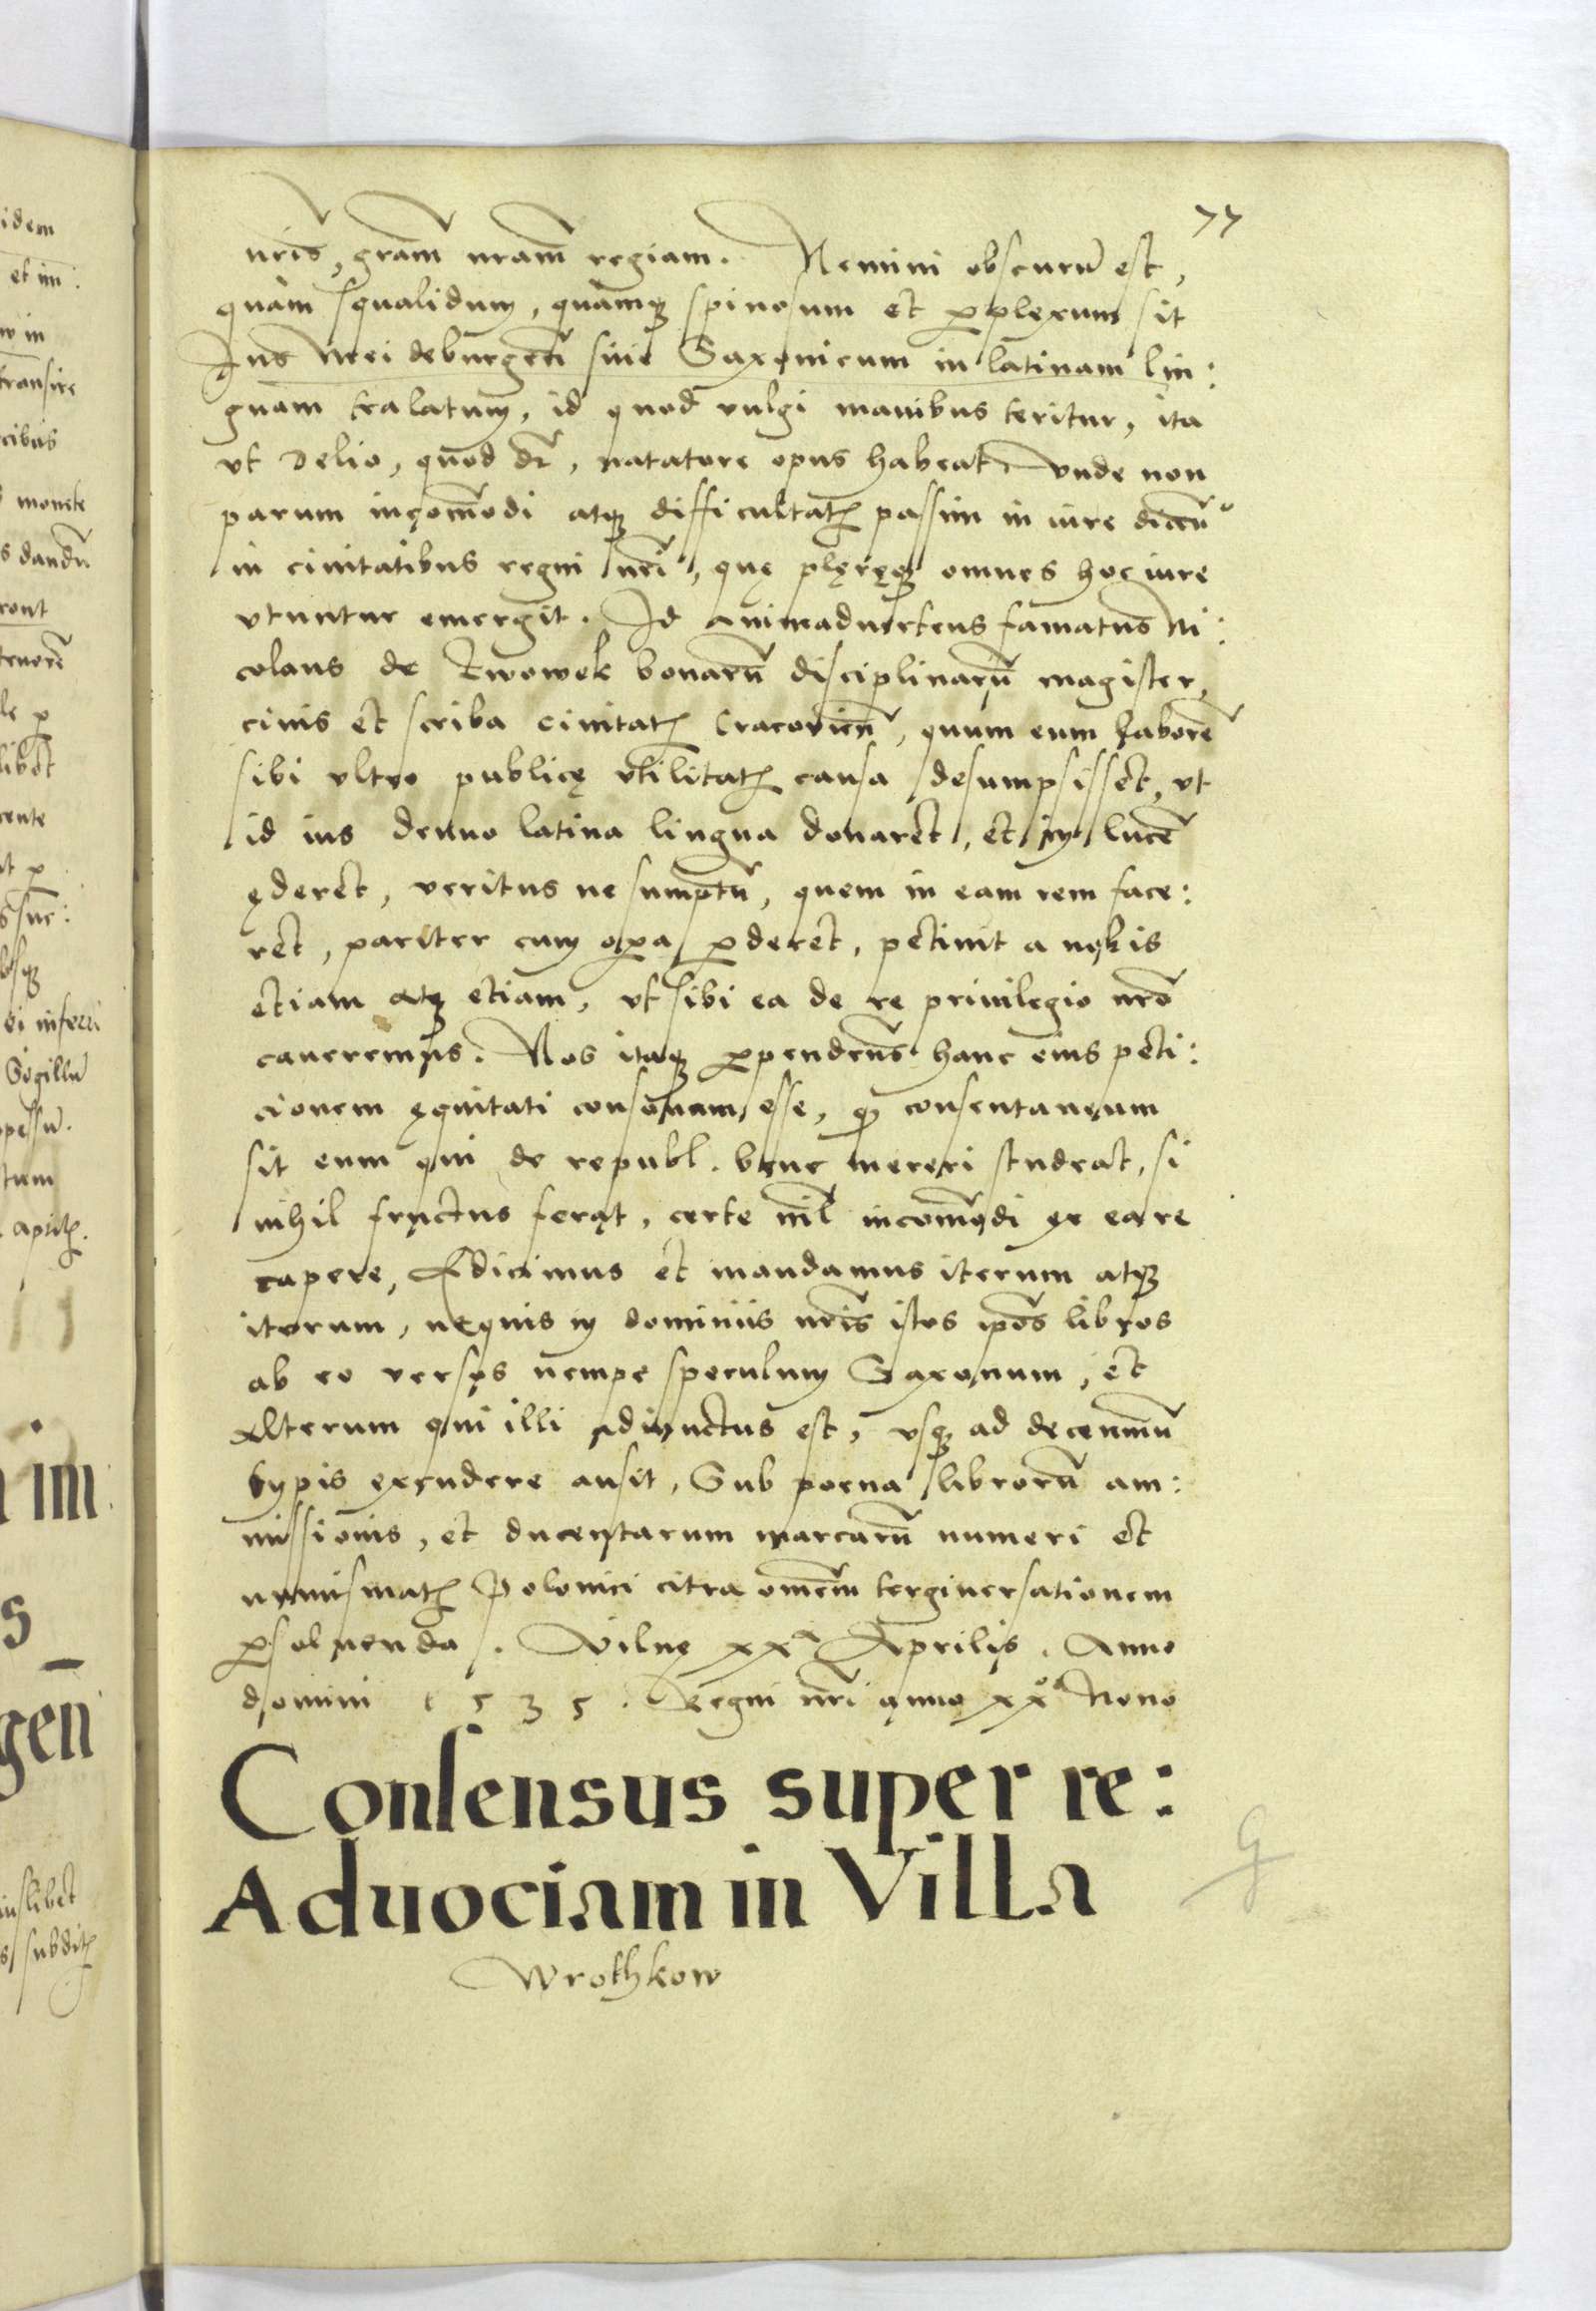 77
nr̃is, gram̃ nram̃ regiam. Nemini obscurũ est,
quàm squalidum, quamq; spinosum et perplexum sit
Jus Meideburgeñ siue Saxonicum in latinam lin:
guam tralatum, id quod vulgi manibus teritur, ita
vt Delio, quod dr̃, natatore opus habeat. Vnde non
parum incom̃odi atq; difficultatis passim in iure dicẽdo
in ciuitatibus regni nr̃i, quę plęręq; omnes hoc iure
vtuntur emergit. Id animaduertens famatus Ni:
colaus de Lwowek bonarũ disciplinarũ magister,
ciuis et scriba ciuitatis Cracovieñ, quum eum laborẽ
sibi vltro publicę vtilitatis causa desumpsisset, vt
id ius denuo latina lingua donaret, et in lucẽ
ęderet, veritus ne sumptũ, quem in eam rem face:
ret, pariter cum opa perderet, petiuit a nobis
etiam atq; etiam, vt sibi ea de re priuilegio nrõ
caueremus. Nos itaq; perpendeñs hanc eius peti:
cionem ęquitati consonam esse, q; consentaneum
sit eum qui de republ. bene mereri studeat, si
nihil fructus ferat, certe nil̃ incom̃odi ex ea re
capere, Edicimus et mandamus iterum atq;
iterum, nequis in dominiis nr̃is istos ip̃os libros
ab eo versos nempe speculum Saxonum, et
alterum qui illi adiunctus est, vsq; ad decenniũ
typis excudere ausit, Sub poena librorũ am:
missionis, et ducentarum marcarũ numeri et
numismatis Polonici citra om̃em tergiuersationem
persoluenda. Vilnę xxa Aprilis. Anno
domini 1535. Regni nr̃i anno xxo Nono
Consensus super re:
Aduociam in Villa
Wrothkow
G